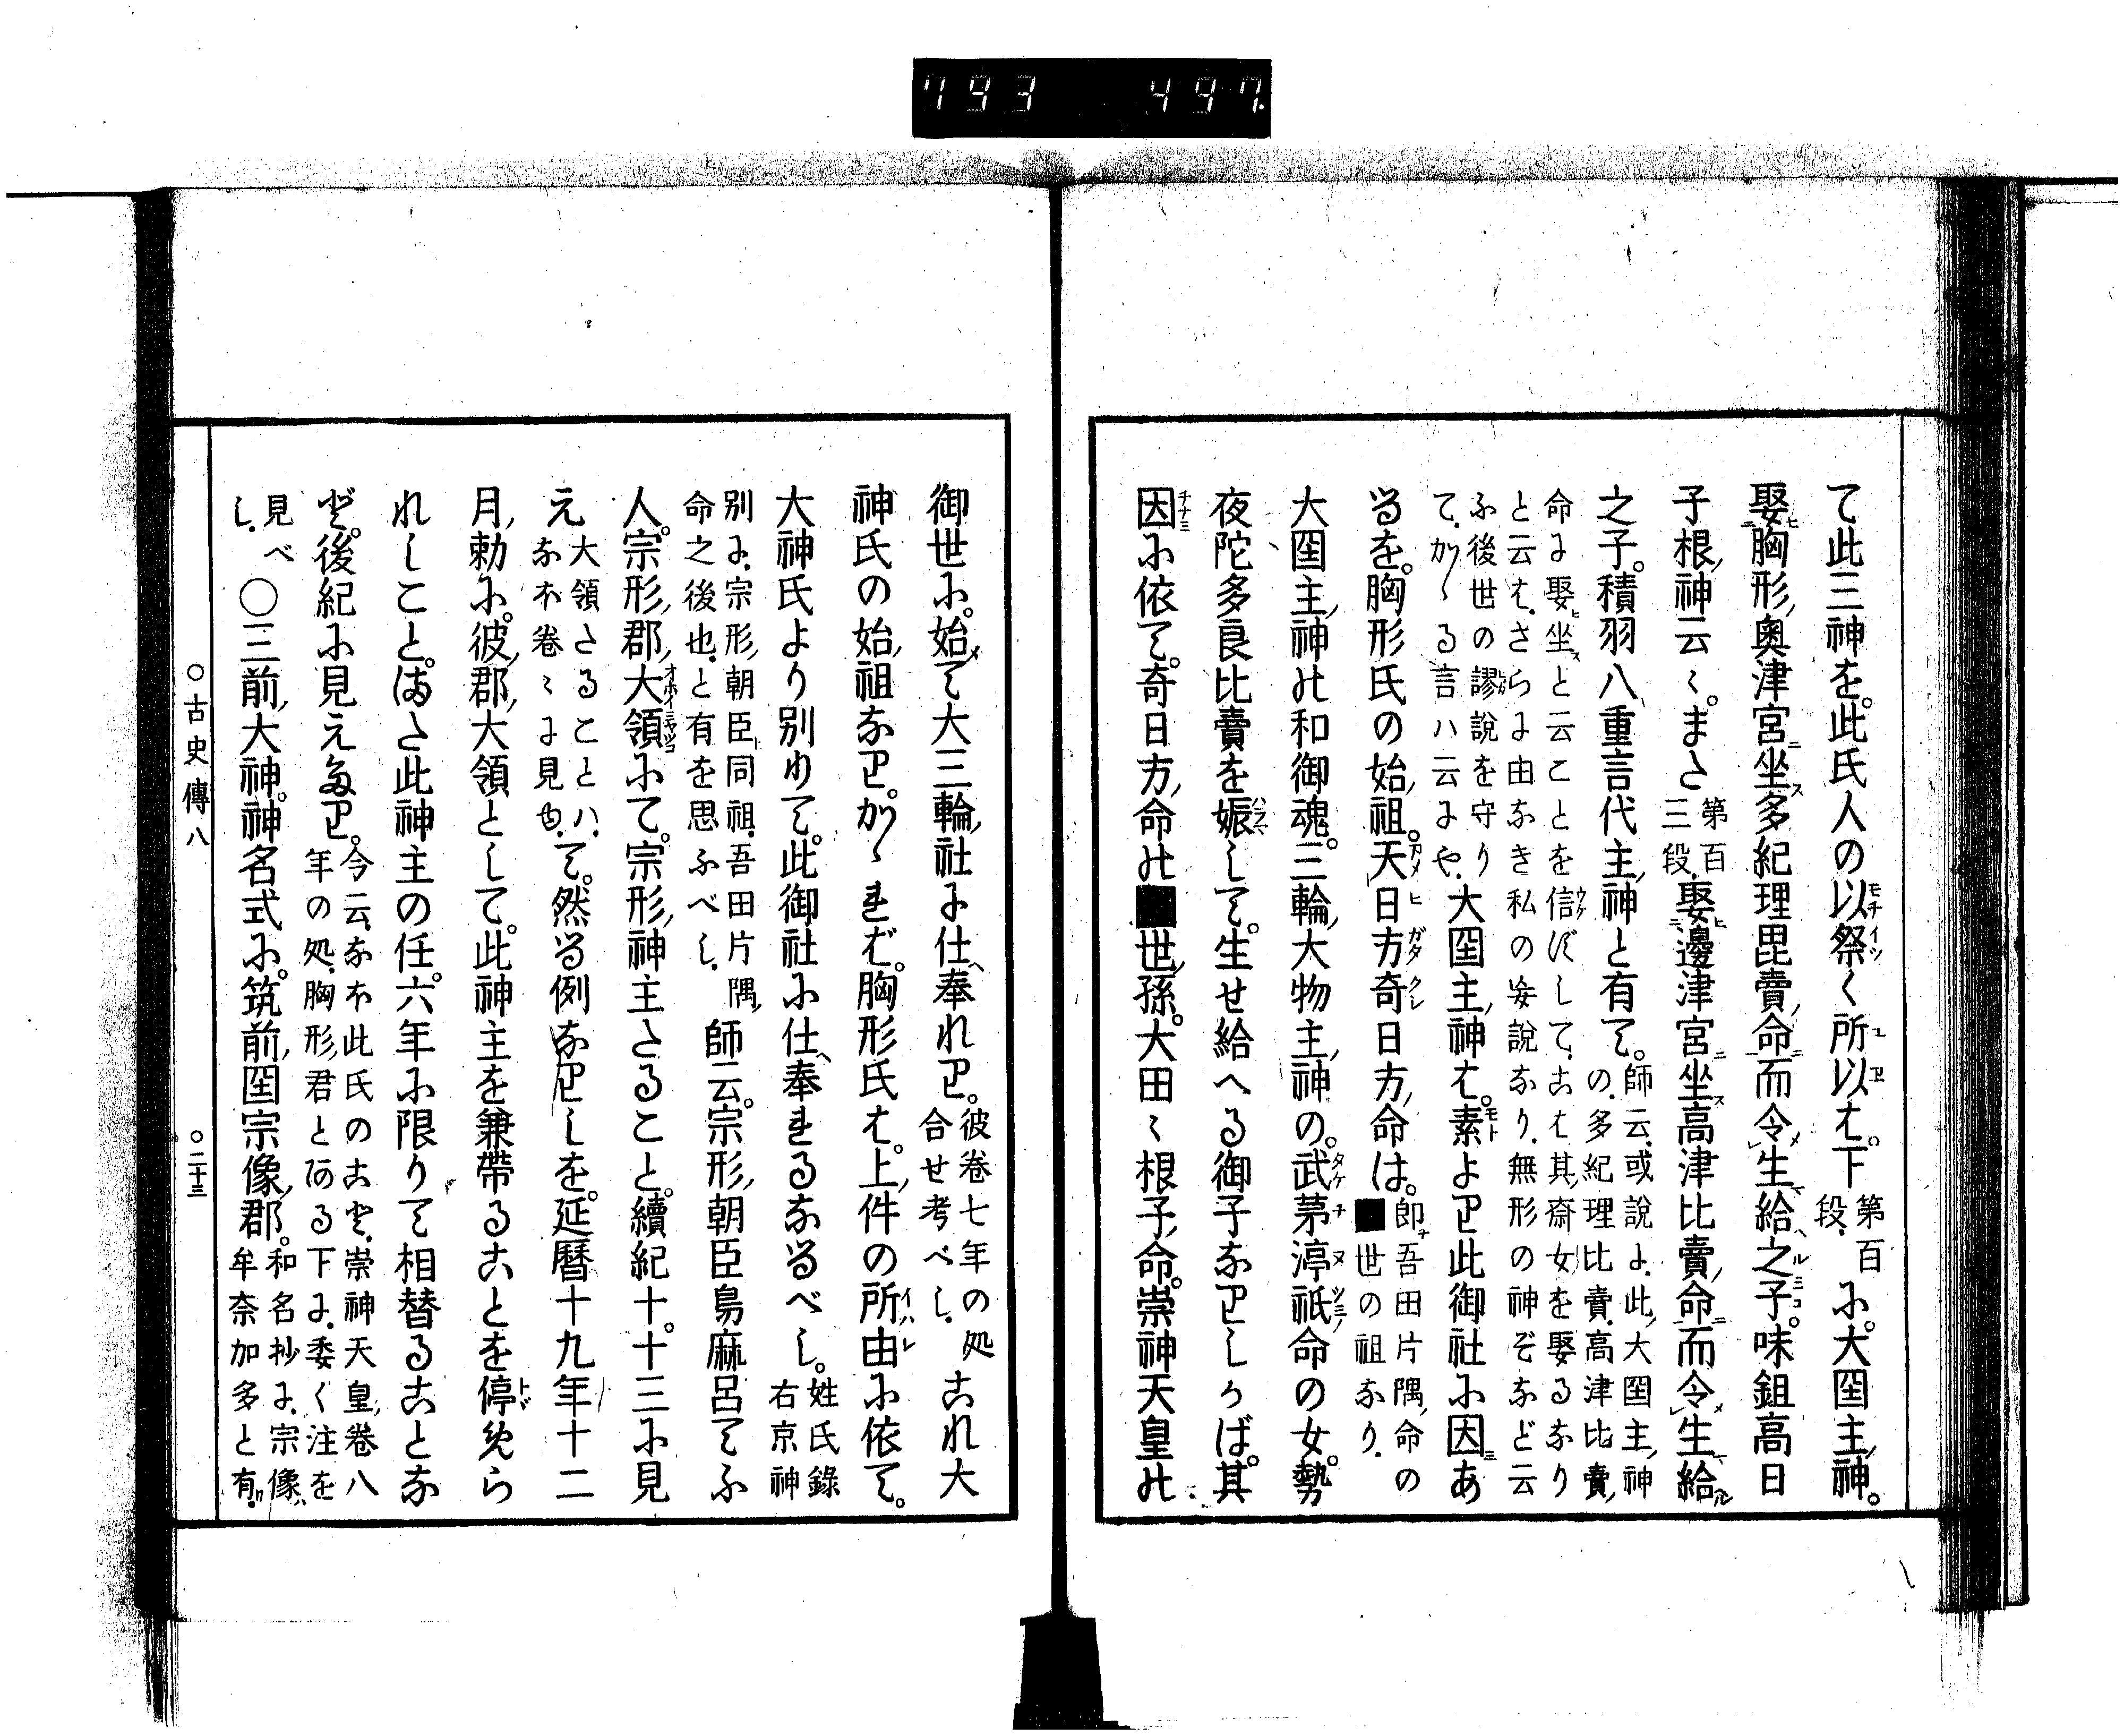 793 497.
て此三神を。此氏人の以祭く所以は。下
第百
段.
に。大国主神。
娶胸形奥津宮坐多紀理毘賣命而令生給之子。味鉏高日
子根神云々。また
第百
三段.
娶邊津宮坐高津比賣命而令生給
之子。積羽八重言代主神と有て。
師云。或說に。此大国主神
の。多紀理比賣。高津比賣
命に娶坐と云ことを信ずして。こは其齋女を娶るなり
と云は。さらに由なき私の妄說なり。無形の神ぞなど云
ふ後世の謬說を守り
て。かゝる言ハ云にや.
大国主神は。素より此御社に因あ
るを。胸形氏の始祖。天日方奇日方命は。
即吾田片隅命の
世の祖なり.
大国主神の和御魂。三輪大物主神の。武茅渟祇命の女。勢
夜陀多良比賣を娠して。生せ給へる御子なりしかば。其
因に依て。奇日方命の■世孫。大田々根子命。崇神天皇の
御世に。始て大三輪社に仕奉れり。
彼卷七年の処
合せ考べし.
これ大
神氏の始祖なり。かゝれば。胸形氏は。上件の所由に依て。
大神氏より別りて。此御社に仕奉れるなるべし。
姓氏錄
右京神
別に。宗形朝臣同祖。吾田片隅
命之後也。と有を思ふべし.
師云。宗形朝臣鳥麻呂てふ
人。宗形郡大領にて。宗形神主たること。續紀十。十三に見
え
大領たることハ。
なほ卷々に見ゆ.
て。然る例なりしを。延暦十九年十二
月勅に。彼郡大領として。此神主を兼帶ることを停めら
れしこと。また此神主の任。六年に限りて相替ることな
ど。後紀に見えたり。
今云。なほ此氏のこと。崇神天皇卷八
年の処。胸形君とある下に。委く注を
見べ
し.
〇三前大神。神名式に。筑前国宗像郡。
和名抄に。宗像
牟奈加多と有.
○古史傳八
○二十三